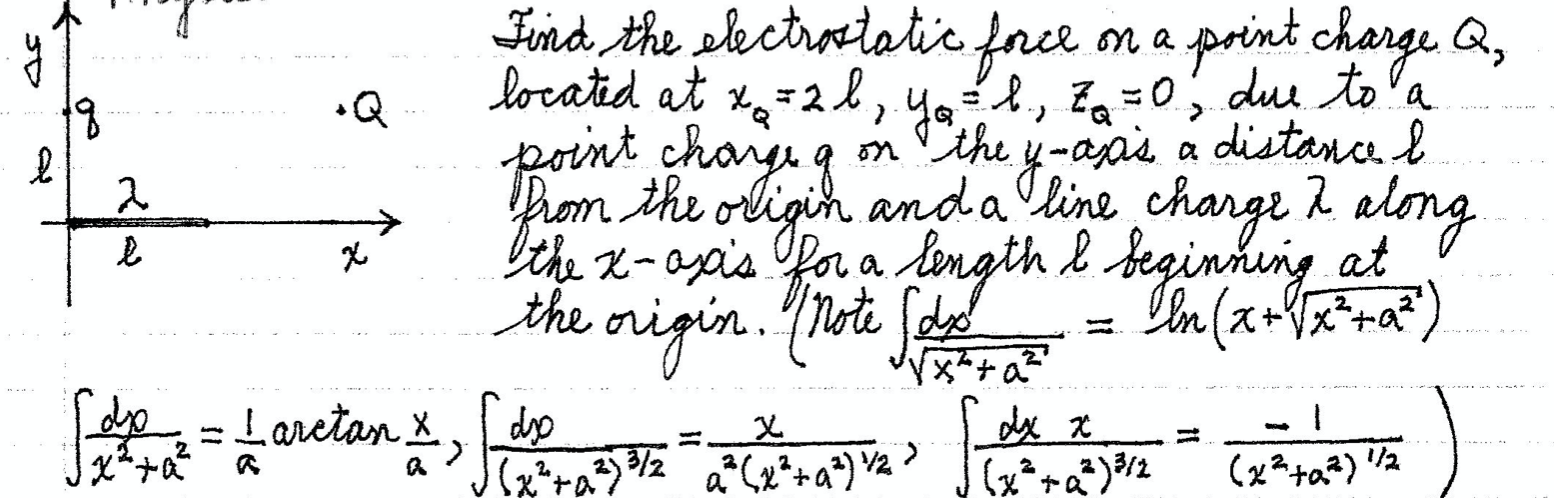 y
q
.Q
l
λ
l
x
Find the electrostatic force on a point charge Q,
located at x_Q = 2l, y_Q = l, z_Q = 0, due to a
point charge q on the y-axis a distance l
from the origin and a line charge λ along
the x-axis for a length l beginning at
the origin. (Note ∫dx/√(x²+a²) = ln(x+√(x²+a²))
∫dx/(x²+a²) = 1/a arctan x/a, ∫dx/(x²+a²)^3/2 = x/(a²(x²+a²)^1/2), ∫dx x/(x²+a²)^3/2 = -1/(x²+a²)^1/2 )